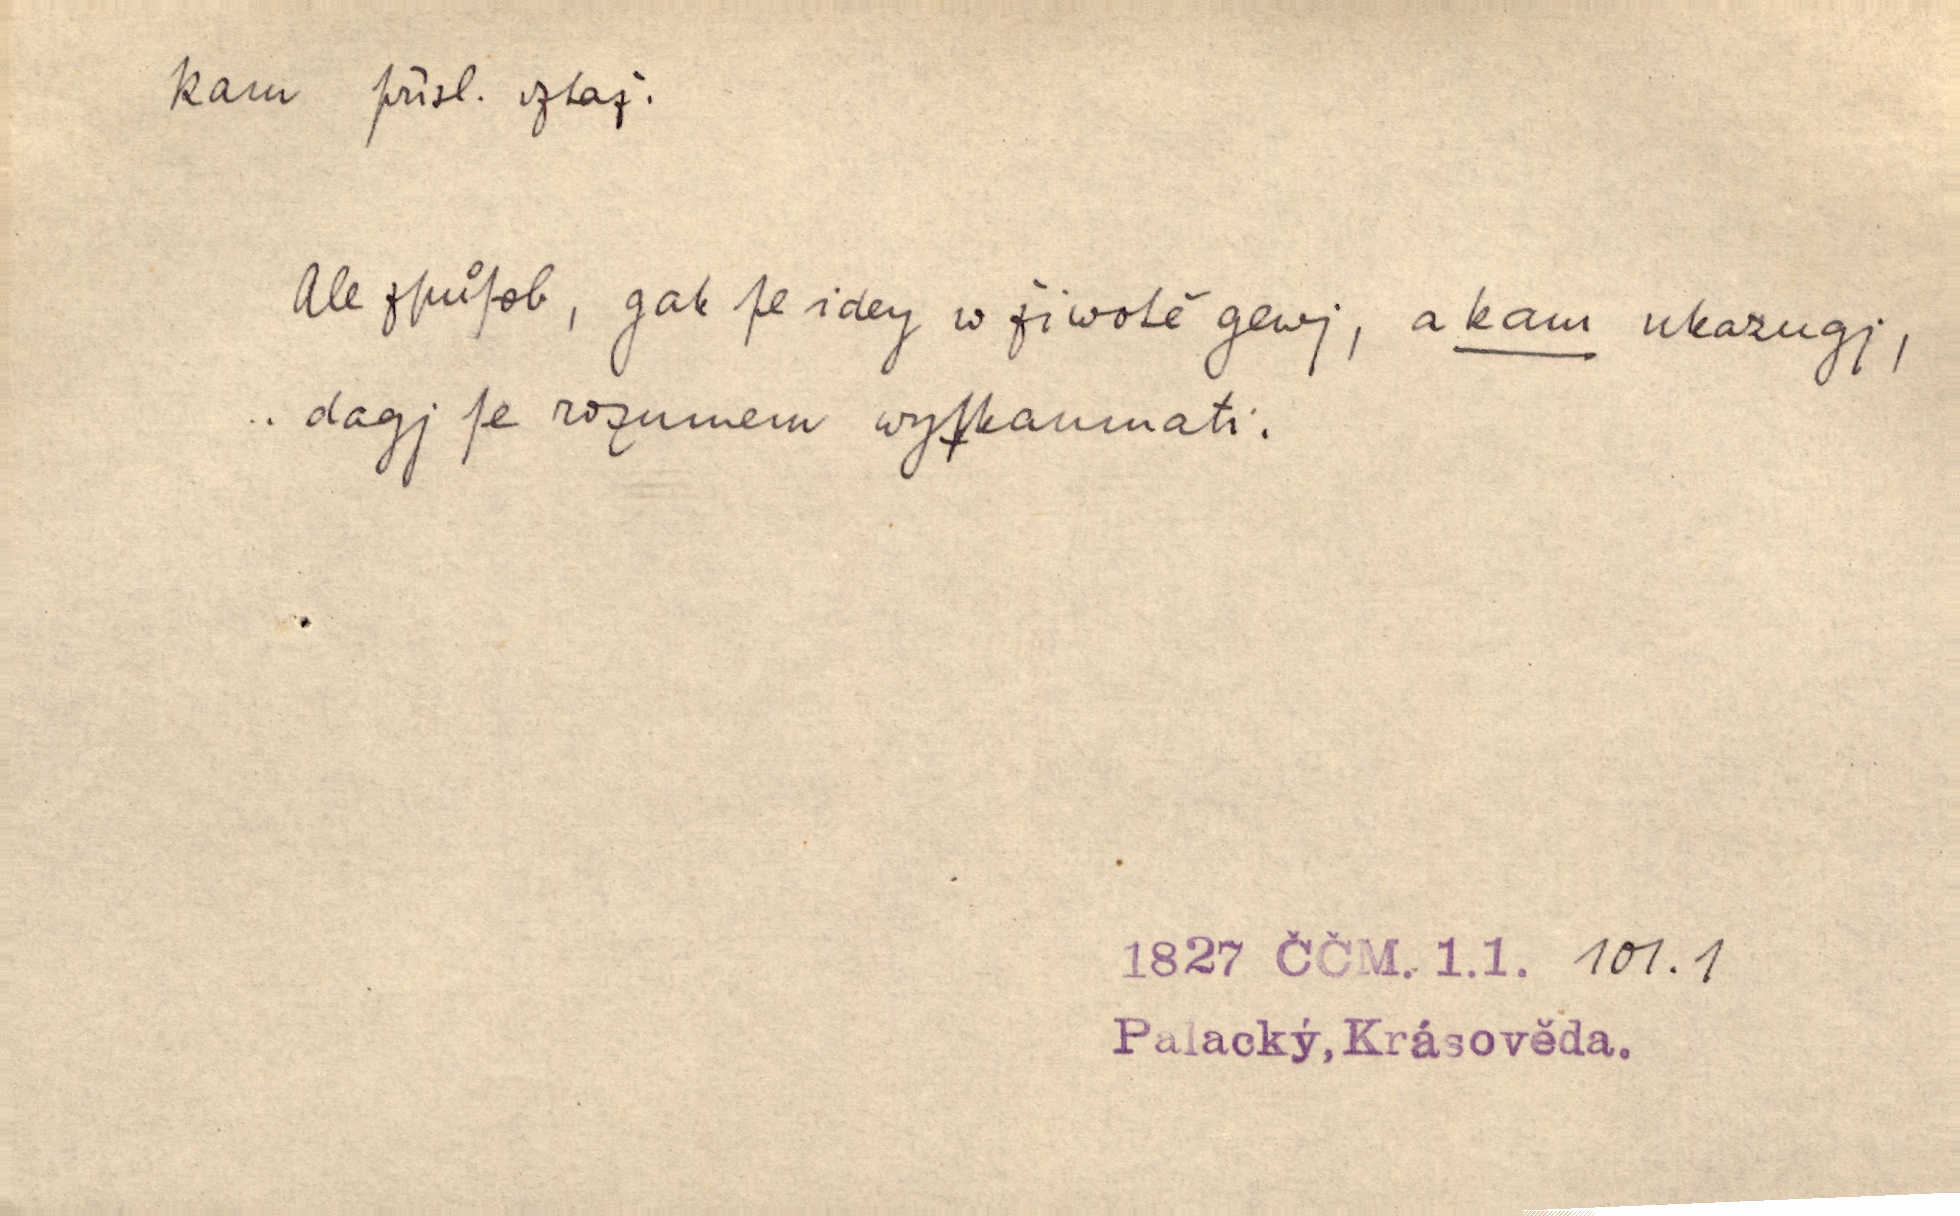 kam přísl. vztaž.
Ale zpuͦſob, gak ſe idey w žiwotě gewj, a kam ukazugj,
.. dagj ſe rozumem wyſkaumati.
1827 ČČM. 1.1. 101.1
Palacký, Krásověda.